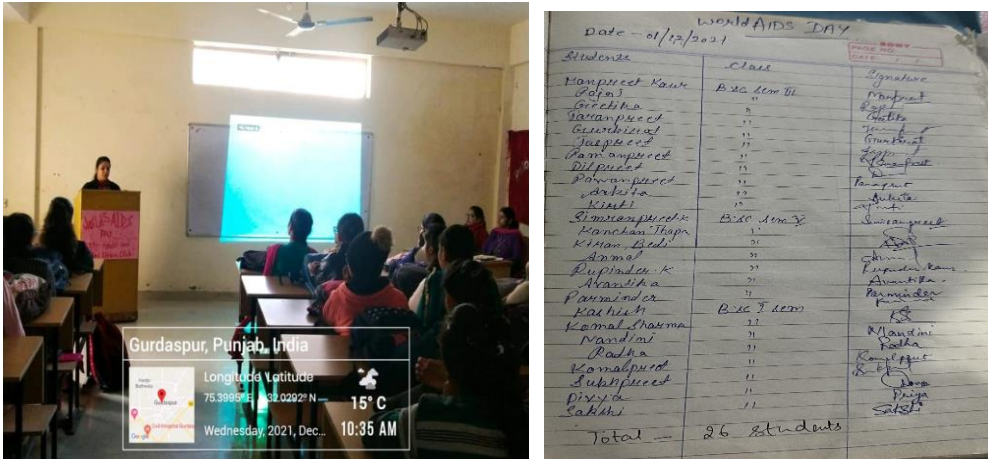 World AIDS
DAY
Gurdaspur, Punjab, India
Longitude Latitude
75.3995° E 32.0292° N
15° C
Wednesday, 2021, Dec...
10:35 AM
Gurdaspur
Civil Hospital Gurdas
Google
World AIDS DAY
Date - 01/12/2021
PAGE NO.
DATE
Students Class Signature
Manpreet Kaur B.sc sem III Manpreet
Pooja "
Geetika " Geetika
Taranpreet "
Gurkirat " Gurkirat
Jaspreet "
Ramanpreet " Ramanpreet
Dilpreet "
Pawanpreet "
Ankita " Ankita
Kirti "
Simranpreet K B.sc sem V Simranpreet
Kanchan Thapa "
Kiran Bedi "
Anmol "
Rupinder K " Rupinder Kaur
Avantika " Avantika
Parminder Parminder
Kashish B.sc I sem
Komal Sharma "
Nandini " Nandini
Radha " Radha
Komalpreet " Komalpreet
Sukhpreet "
Divya " Divya
Sakshi " Sakshi
Total — 26 students